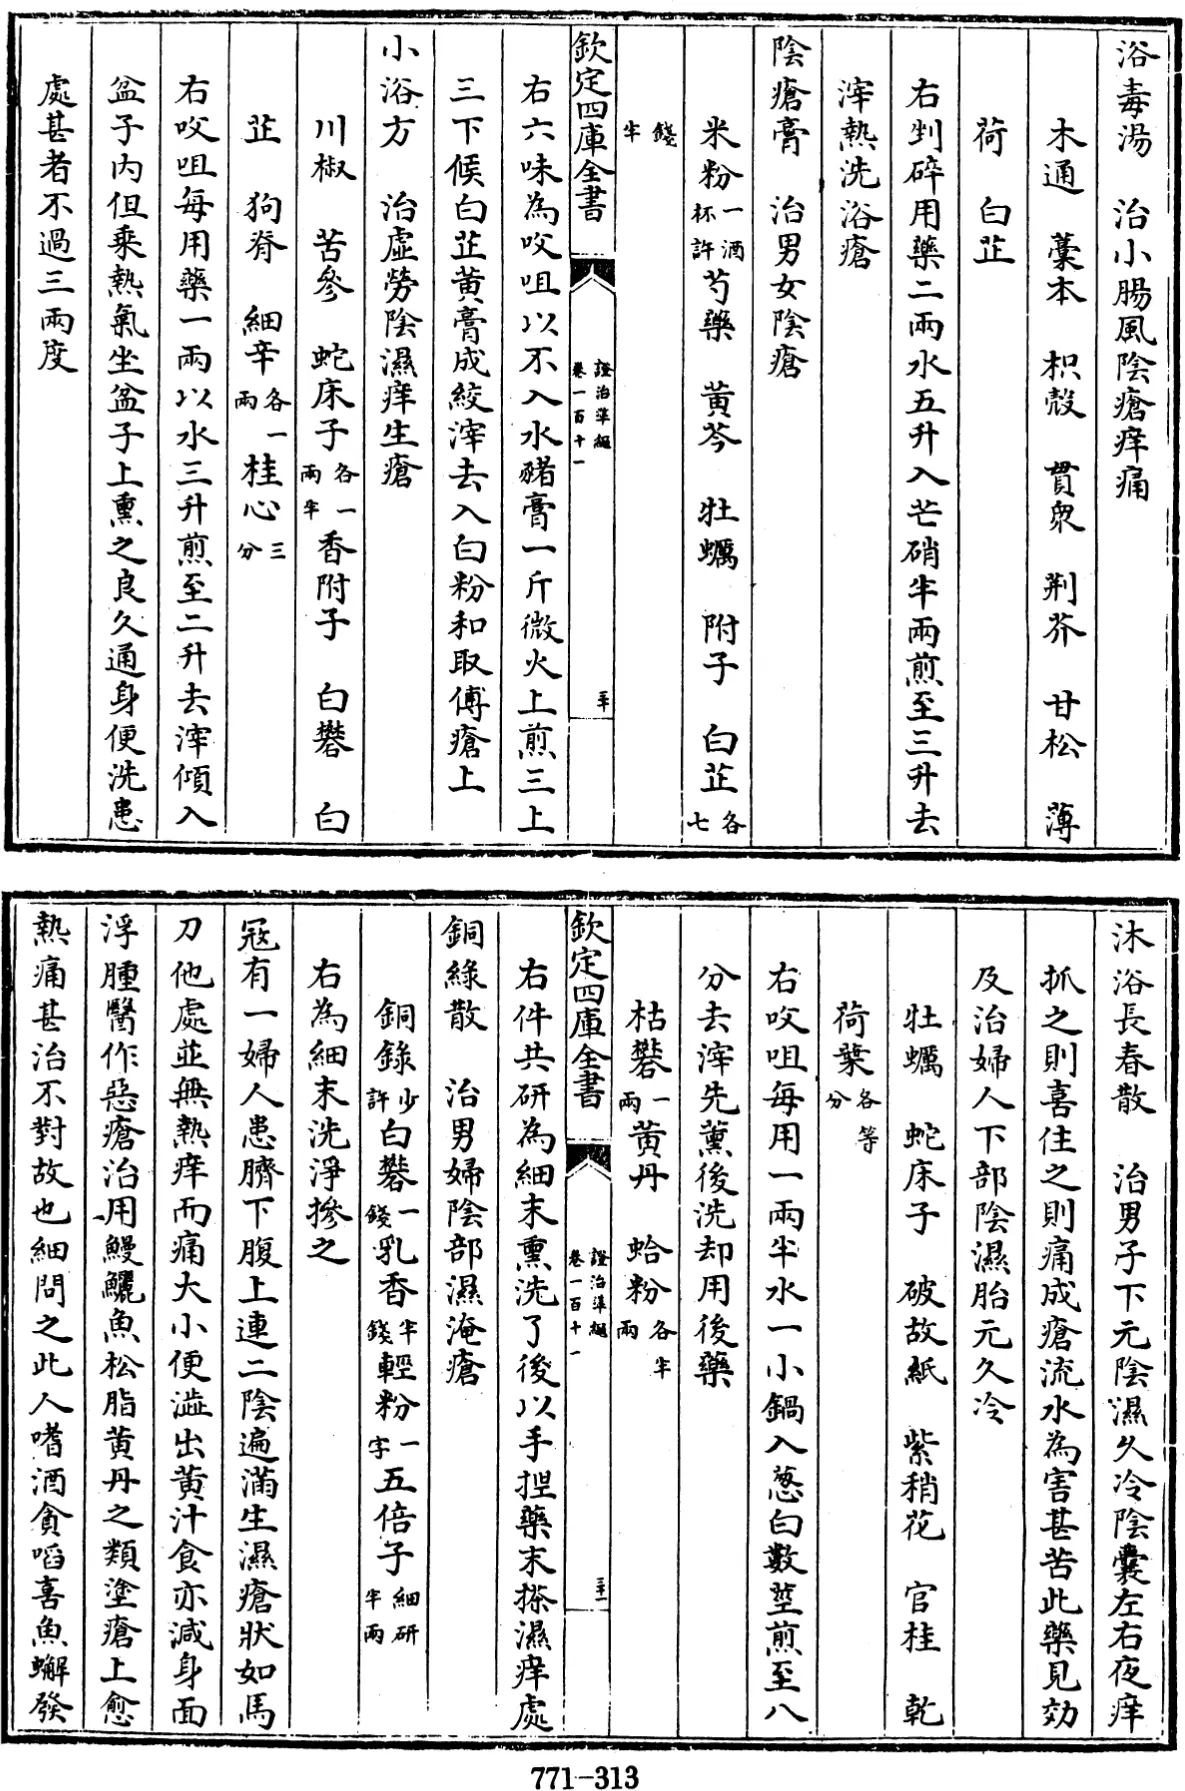 浴毒湯　治小腸風陰瘡痒痛
木通　藁本　枳殻　貫衆　荆芥　甘松　薄
荷　白芷
右剉碎用藥二兩水五升入芒硝半兩煎至三升去
滓熱洗浴瘡
陰瘡膏　治男女陰瘡
米粉一酒杯許　芍藥　黄芩　牡蠣　附子　白芷各七
錢半
欽定四庫全書　證治準繩卷一百十一　三十
右六味為㕮咀以不入水豬膏一斤微火上煎三上
三下候白芷黄膏成絞滓去入白粉和取傅瘡上
小浴方　治虚勞陰濕痒生瘡
川椒　苦參　蛇床子各一兩半　香附子　白礬　白
芷　狗脊　細辛各一兩　桂心三分
右㕮咀每用藥一兩以水三升煎至二升去滓傾入
盆子内但乘熱氣坐盆子上熏之良久通身便洗患
處甚者不過三兩度
沐浴長春散　治男子下元陰濕久冷陰囊左右夜痒
抓之則喜住之則痛成瘡流水為害甚苦此藥見効
及治婦人下部陰濕胎元久冷
牡蠣　蛇床子　破故紙　紫稍花　官桂　乾
荷葉各等分
右㕮咀每用一兩半水一小鍋入葱白數莖煎至八
分去滓先薰後洗却用後藥
枯礬一兩　黄丹　蛤粉各半兩
欽定四庫全書　證治準繩卷一百十一　三十一
右件共研為細末熏洗了後以手捏藥末搽濕痒處
銅緑散　治男婦陰部濕淹瘡
銅錄少許　白礬一錢　乳香半錢　輕粉一字　五倍子細研半兩
右為細末洗淨摻之
冦有一婦人患臍下腹上連二陰遍滿生濕瘡狀如馬
刀他處並無熱痒而痛大小便澁出黄汁食亦減身面
浮腫醫作惡瘡治用鰻鱺魚松脂黄丹之類塗瘡上愈
熱痛甚治不對故也細問之此人嗜酒貪啗喜魚蠏發
771-313